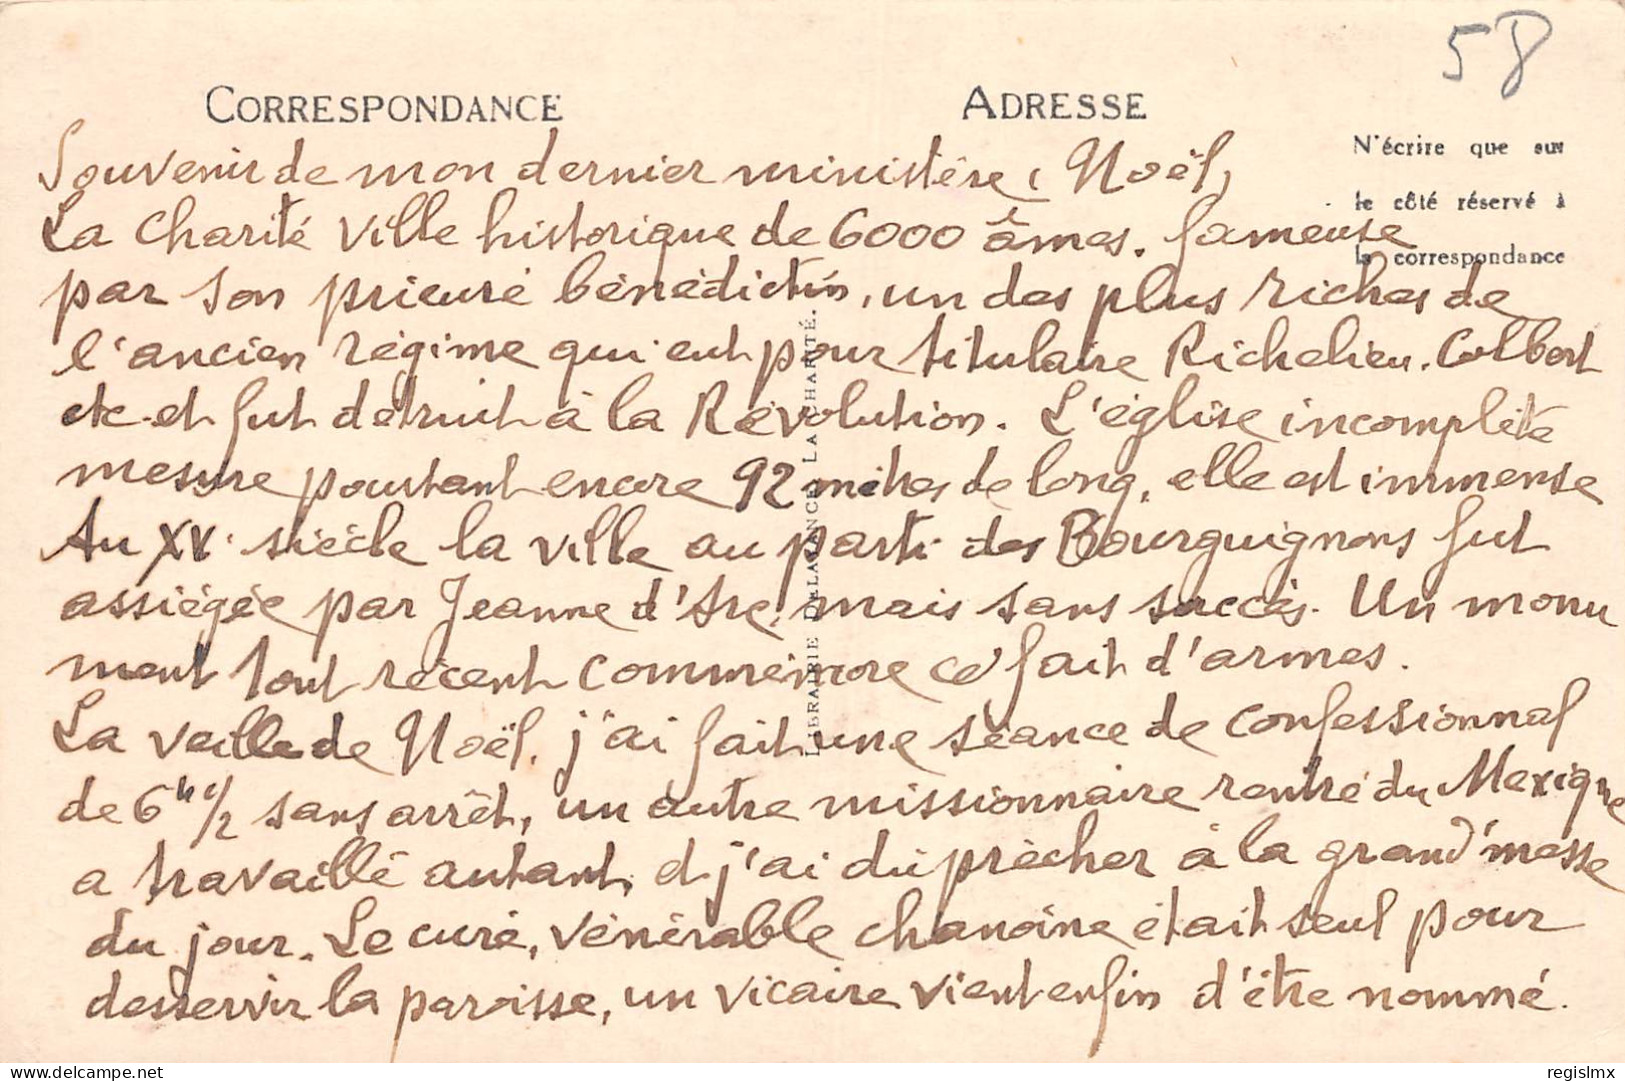 58
CORRESPONDANCE
ADRESSE
N'écrire que sur
le côté réservé à
la correspondance
Souvenir de mon dernier ministère (Noël)
La Charité ville historique de 6000 âmes. fameuse
par son prieuré bénédictin, un des plus riches de
l'ancien régime qui eut pour titulaire Richelieu. Colbert
etc. et fut detruit à la Révolution. L'église incomplète
mesure pourtant encore 92 mètres de long, elle est immense
Au XV. siècle la ville au parti des Bourguignons fut
assiégée par Jeanne d'Arc, mais sans succès. Un monu
ment tout récent commémore ce fait d'armes.
La veille de Noël, j'ai fait une séance de confessionnal
de 6h 1/2 sans arrêt, un autre missionnaire rentré du Mexique
a travaillé autant, et j'ai dû prêcher à la grand'messe
du jour. Le curé, vénérable chanoine était seul pour
desservir la paroisse, un vicaire vient enfin d'être nommé.
LIBRAIRIE DELAVANCE LA CHARITÉ.
delcampe.net
regislmx